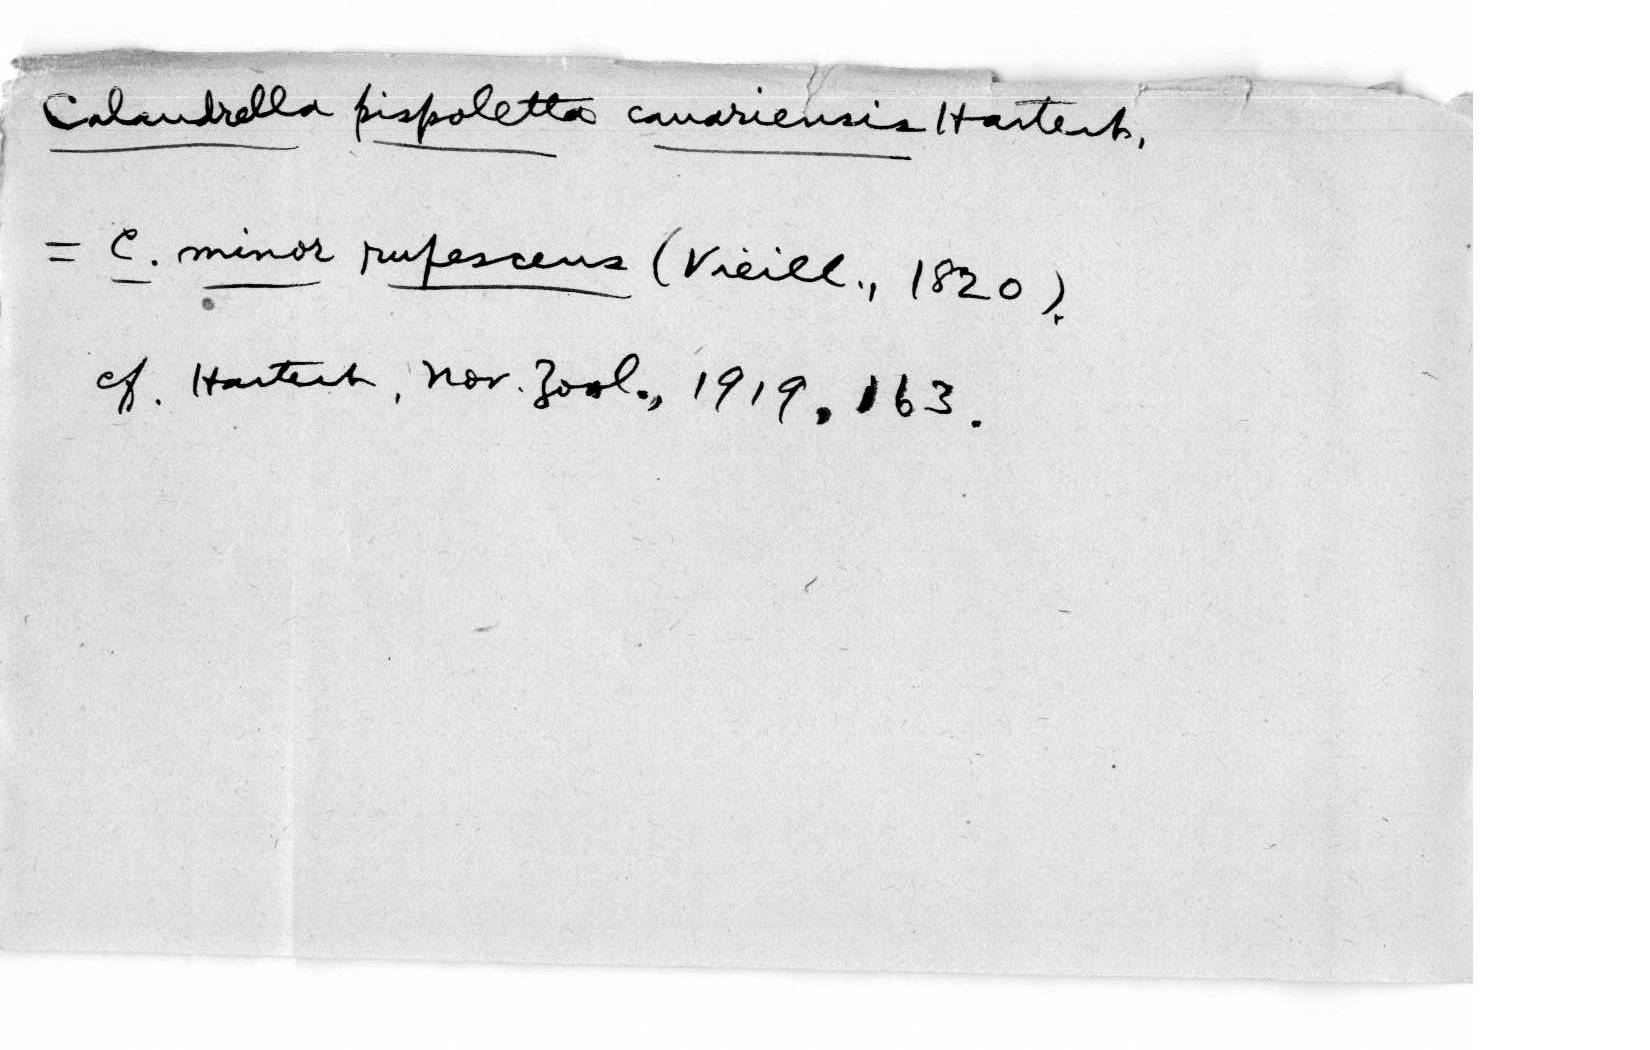 Calandrella pispoletta canariensis Hartert,
= C. minor rufescens (Vieill., 1820).
cf. Hartert, Nov. Zool., 1919, 163.